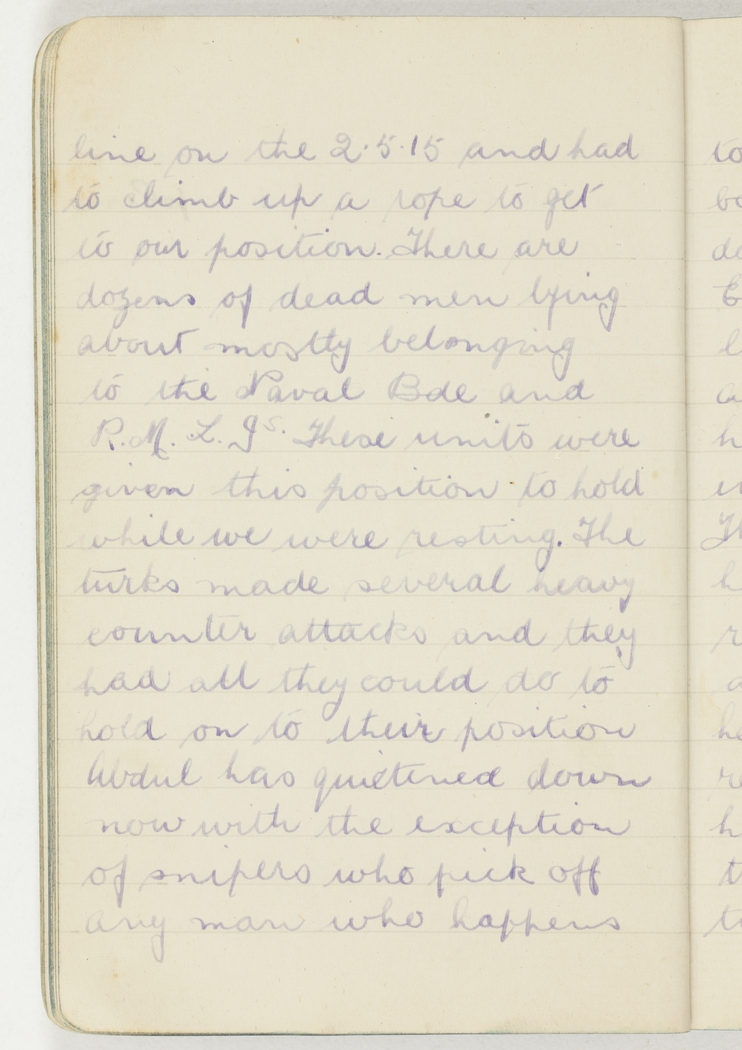 line on the 2.5.15 and had
to climb up a rope to get
to our position. There are
dozens of dead men lying
about mostly belonging
to the Naval Bde and
R.M.L.Is. These units were
given this position to hold
while we were resting. The
turks made several heavy
counter attacks and they
had all they could do to
hold on to their position
Abdul has quietened down
now with the exception
of snipers who pick off
any man who happens